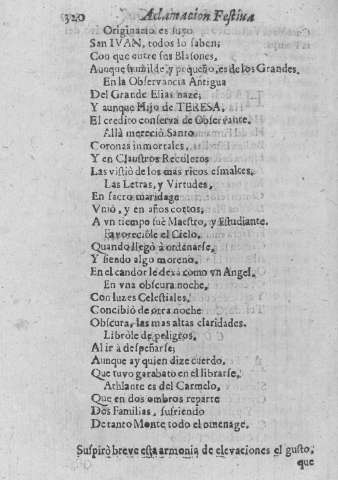 320 Aclamacion Festiua
Originario es suyo
San IVAN, todos lo saben;
Con que entre sus Blasones,
Aunque humilde, y pequeño, es de los Grandes.
En la Observancia Antigua
Del Grande Elias naze;
Y aunque Hijo de TERESA,
El credito conserva de Observante.
Allà mereciò Santo
Coronas inmortales,
Y en Claustros Recoletos
Las vistiò de los mas ricos esmaltes.
Las Letras, y Virtudes,
En sacro maridage
Vniò, y en años cortos,
A vn tiempo fuè Maestro, y Estudiante.
Favoreciòle el Cielo,
Quando llegò à ordenarse,
Y siendo algo moreno,
En el candor le dexa como vn Angel.
En vna obscura noche,
Con luzes Celestiales,
Concibiò de otra noche
Obscura, las mas altas claridades.
Libròle de peligros,
Al ir à despeñarse;
Aunque ay quien dize cuerdo,
Que tuvo garabato en el librarse.
Athlante es del Carmelo,
Que en dos ombros reparte
Dos Familias, sufriendo
De tanto Monte todo el omenage.
Suspirò breve esta armonia de elevaciones el gusto,
que